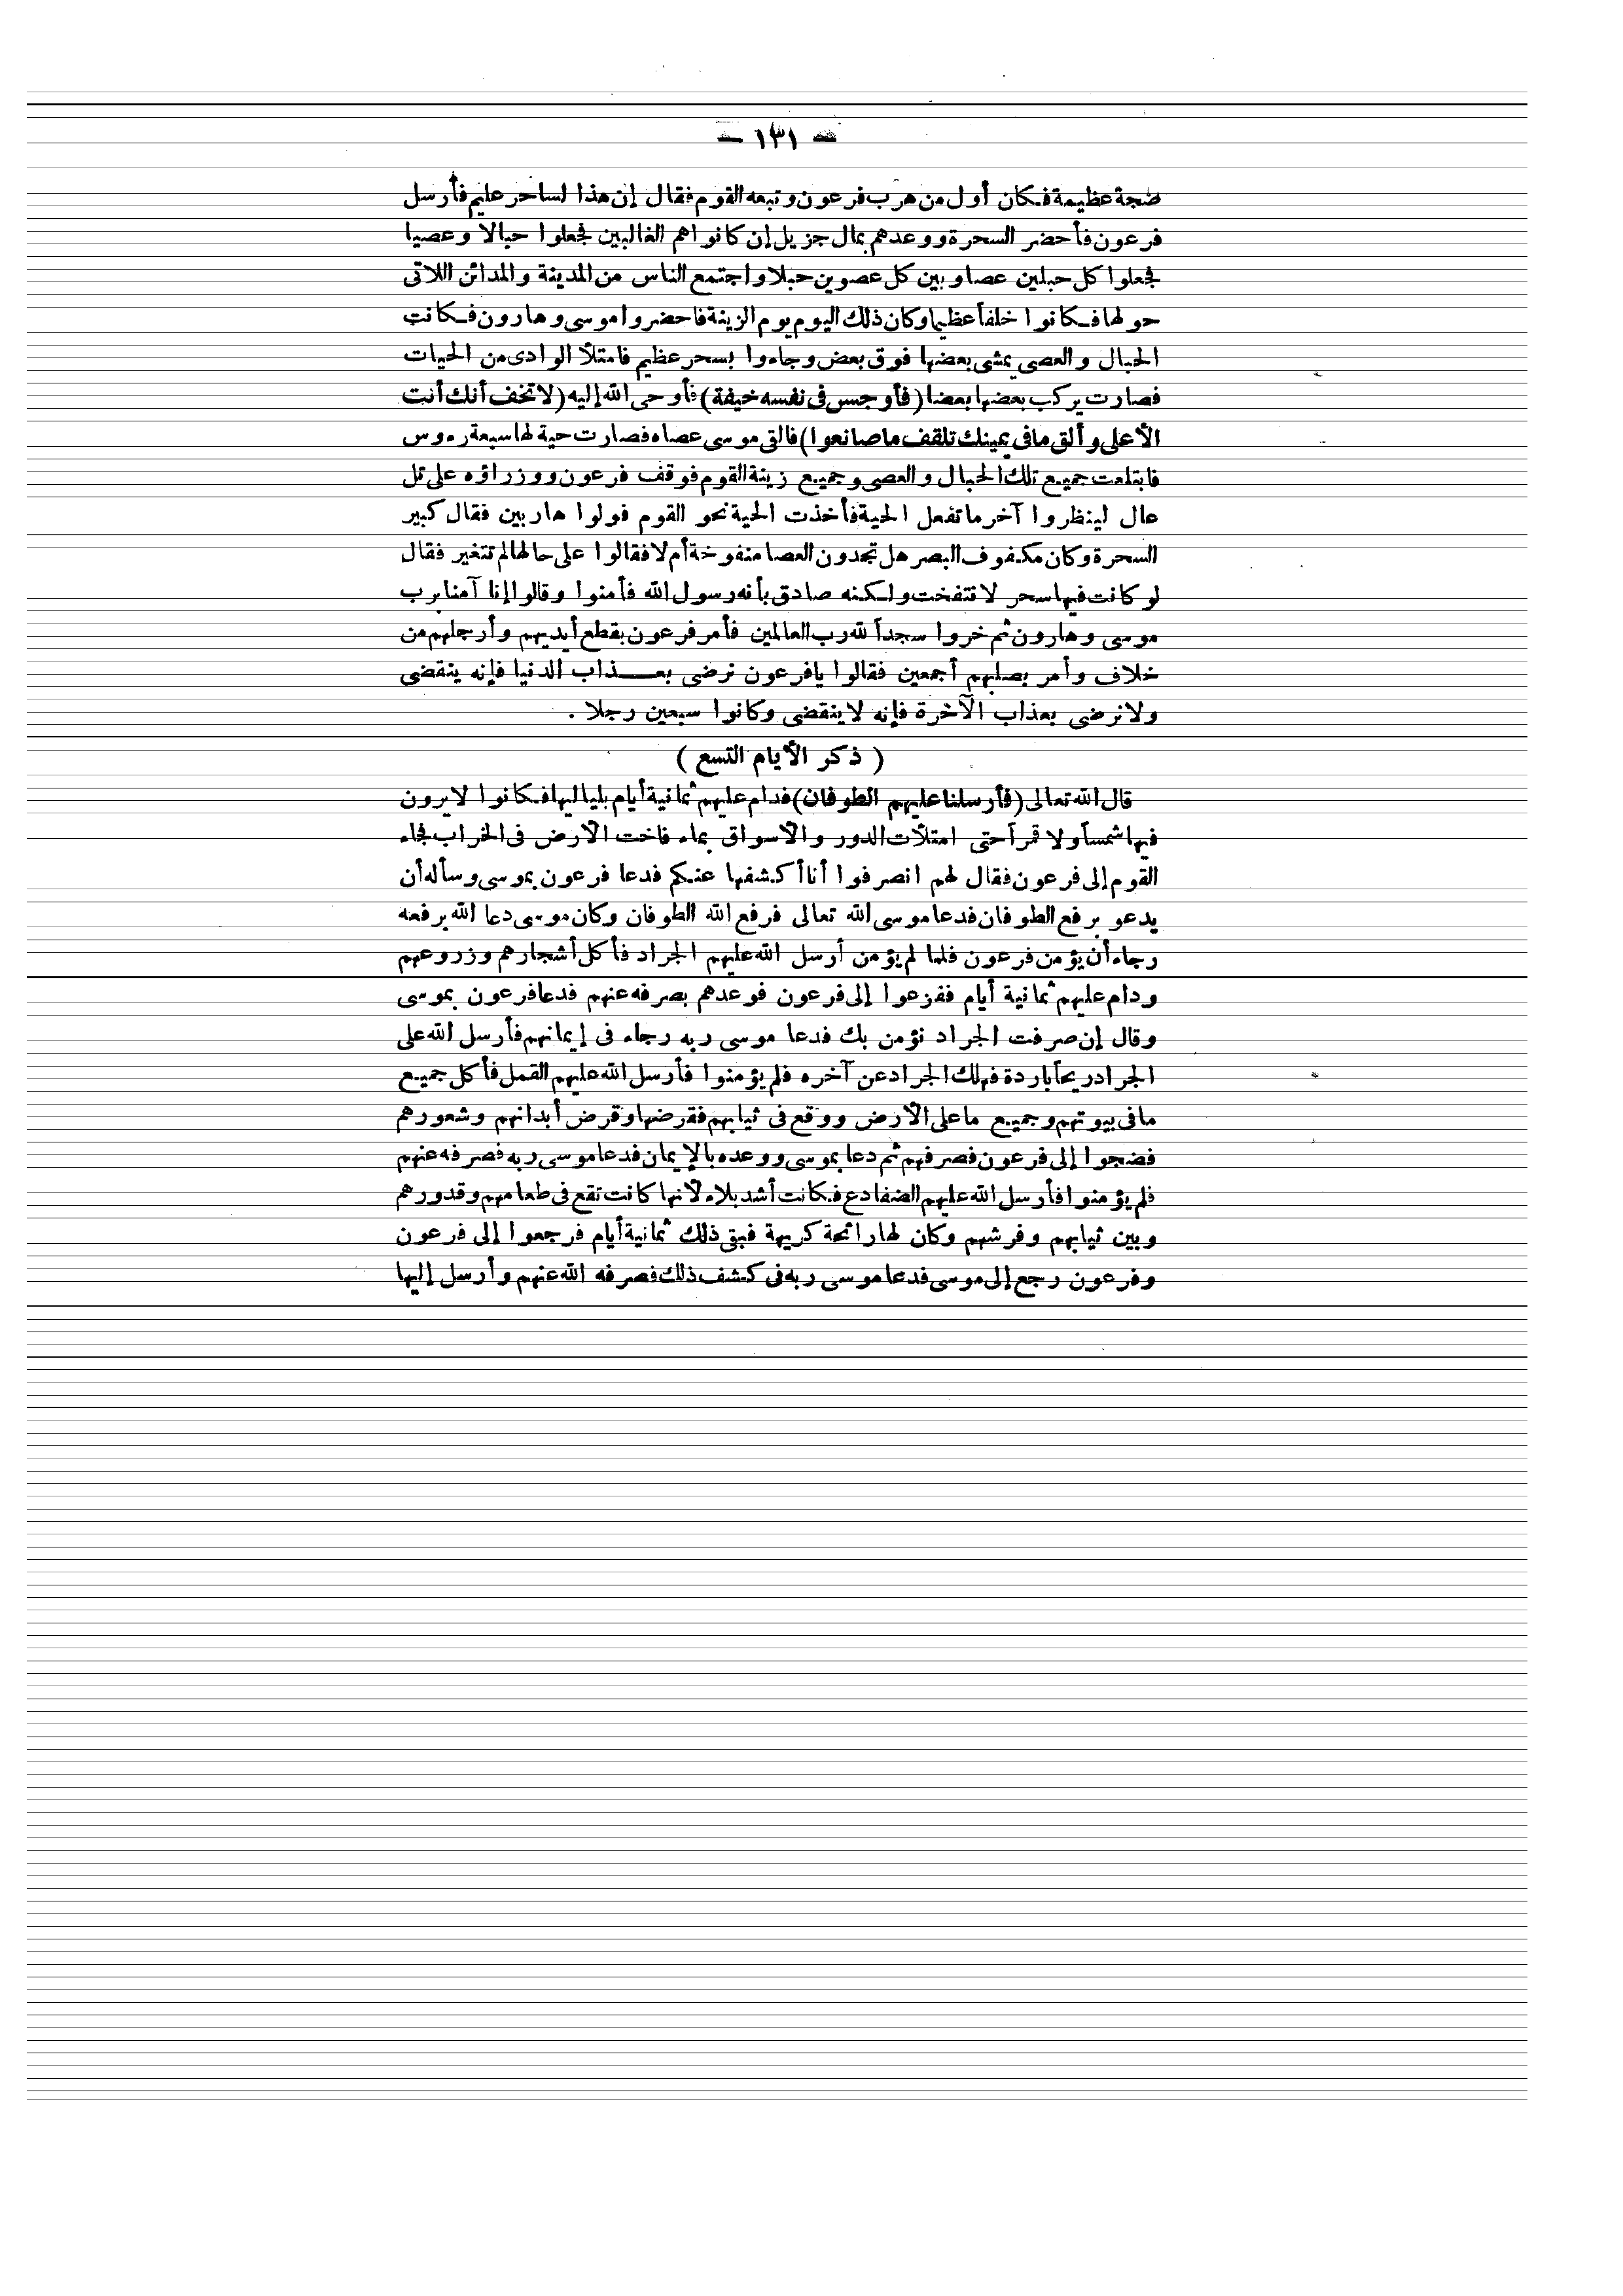 — ١٣١ —
ضجة عظيمة فكان أول من هرب فرعون وتبعه القوم فقال إن هذا لساحر عليم فأرسل
فرعون فأحضر السحرة ووعدهم بمال جزيل إن كانوا هم الغالبين فجعلوا حبالا وعصيا
فجعلوا كل حبلين عصا وبين كل عصوين حبلا واجتمع الناس من المدينة والمدائن اللاتى
حولها فكانوا خلفاً عظيما وكان ذلك اليوم يوم الزينة فاحضروا موسى وهارون فكانت
الحبال والعصى يمشى بعضها فوق بعض وجاءوا بسحر عظيم فامتلأ الوادى من الحيات
فصارت يركب بعضها بعضا (فأوجس فى نفسه خيفة) فأوحى الله إليه (لا تخف أنك أنت
الأعلى وألق مافى يمينك تلقف ماصانعوا) فالقى موسى عصاه فصارت حية لها سبعة رءوس
فابتلعت جميع تلك الحبال والعصى وجميع زينة القوم فوقف فرعون ووزراؤه على تل
عال لينظروا آخر ما تفعل الحية فأخذت الحية نحو القوم فولوا هاربين فقال كبير
السحرة وكان مكفوف البصر هل تجدون العصا منفوخة أم لا فقالوا على حالها لم تتغير فقال
لو كانت فيها سحر لانتفخت ولكنه صادق بأنه رسول الله فأمنوا وقالوا إنا آمنا برب
موسى وهارون ثم خروا سجداً لله رب العالمين فأمر فرعون بقطع أيديهم وأرجلهم من
خلاف وأمر بصلبهم أجمعين فقالوا يافرعون نرضى بعـــذاب الدنيا فإنه ينقضى
ولا نرضى بعذاب الآخرة فإنه لا ينقضى وكانوا سبعين رجلا .
( ذكر الأيام التسع )
قال الله تعالى (فأرسلنا عليهم الطوفان) فدام عليهم ثمانية أيام بلياليها فكانوا لا يرون
فيها شمساً ولا قمراً حتى امتلأت الدور والأسواق بماء فاخت الأرض فى الخراب فجاء
القوم إلى فرعون فقال لهم انصرفوا أنا أكشفها عنكم فدعا فرعون بموسى وسأله أن
يدعو برفع الطوفان فدعا موسى الله تعالى فرفع الله الطوفان وكان موسى دعا الله برفعه
رجاء أن يؤمن فرعون فلما لم يؤمن أرسل الله عليهم الجراد فأكل أشجارهم وزروعهم
ودام عليهم ثمانية أيام ففزعوا إلى فرعون فوعدهم بصرفه عنهم فدعا فرعون بموسى
وقال إن صرفت الجراد نؤمن بك فدعا موسى ربه رجاء فى إيمانهم فأرسل الله على
الجراد ريحاً باردة فهلك الجراد عن آخره فلم يؤمنوا فأرسل الله عليهم القمل فأكل جميع
مافى بيوتهم وجميع ما على الأرض ووقع فى ثيابهم فقرضها وقرض أبدانهم وشعورهم
فضجوا إلى فرعون فصرفهم ثم دعا بموسى ووعده بالإيمان فدعا موسى ربه فصرفه عنهم
فلم يؤمنوا فأرسل الله عليهم الضفادع فكانت أشد بلاء لأنها كانت تقع فى طعامهم وقدورهم
وبين ثيابهم وفرشهم وكان لها رائحة كريهة فبقى ذلك ثمانية أيام فرجعوا إلى فرعون
وفرعون رجع إلى موسى فدعا موسى ربه فى كشف ذلك فصرفه الله عنهم وأرسل إليها